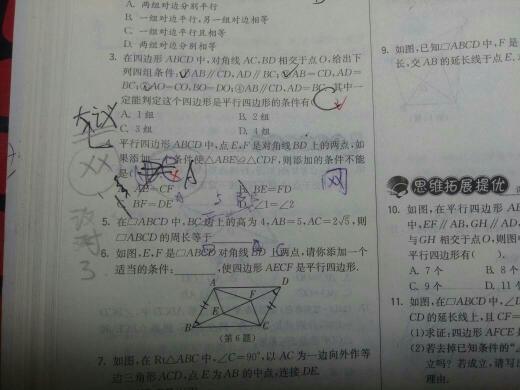 A. 两组对边分别平行
B. 一组对边平行,另一组对边相等
C. 一组对边平行且相等
D. 两组对边分别相等
3. 在四边形 ABCD 中,对角线 AC,BD 相交于点 O,给出下
列四组条件:①AB∥CD,AD∥BC;②AB=CD,AD=
BC;③AO=CO,BO=DO;④AB∥CD,AD=BC.其中一
定能判定这个四边形是平行四边形的条件有
A. 1 组
B. 2 组
C. 3 组
D. 4 组
平行四边形 ABCD 中,点 E,F 是对角线 BD 上的两点,如
果添加一个条件使△ABE≌△CDF,则添加的条件不能
是(
A
AE=CF
BE=FD
BF=DE
∠1=∠2
网
××
3
5. 在□ABCD 中,BC 边上的高为 4,AB=5,AC=2√5,则
□ABCD 的周长等于
6. 如图,E,F 是□ABCD 对角线 BD 上两点,请你添加一个
适当的条件: ,使四边形 AECF 是平行四边形.
A D
F
E
B C
(第 6 题)
7. 如图,在 Rt△ABC 中,∠C=90°,以 AC 为一边向外作等
边三角形 ACD,点 E 为 AB 的中点,连接 DE.
9. 如图,已知□ABCD 中,F 是
长,交 AB 的延长线于点 E.
思维拓展提优
10. 如图,在平行四边形 AB
中,EF∥AB,GH∥AD,
与 GH 相交于点 O,则图
平行四边形有( ).
A. 7 个
B. 8 个
C. 9 个
D. 11
11. 如图,在□ABCD
CD 的延长线上,且 CF=
(1)求证:四边形 AFCE
(2)若去掉已知条件的“
立吗?若成立,请写
理由.